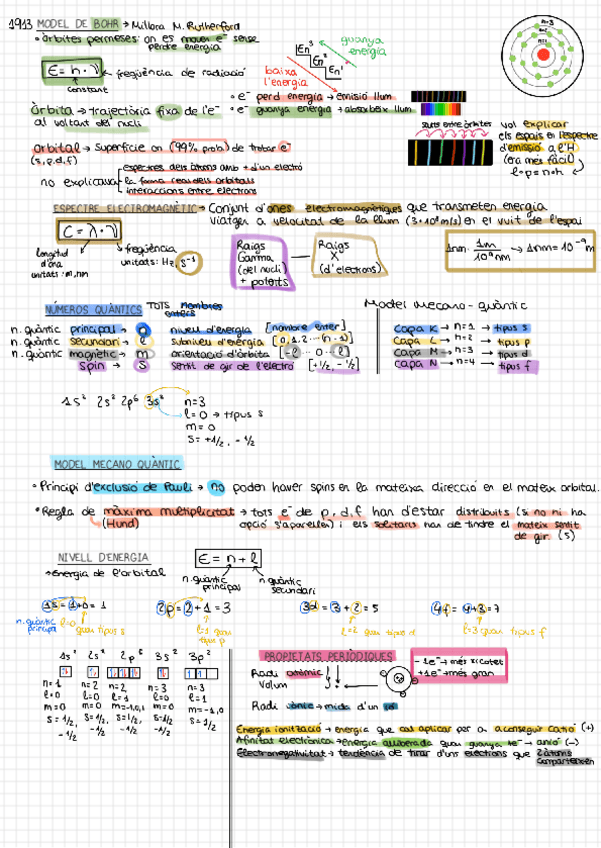 1913 MODEL DE BOHR → Millora M. Rutherford
• òrbites permeses on es mouen e⁻ sense perdre energia
guanya energia
En³
En²
En¹
baixa l'energia
n=3
E = h · ν → freqüència de radiació
constant
• e⁻ perd energia → emissió llum
• e⁻ guanya energia → absorbeix llum
Òrbita → trajectòria fixa de l'e⁻
al voltant del nucli
salts entre òrbites
vol explicar
els espais en l'espectre
d'emissió a l'H
(era més fàcil)
l·p = n·h
orbital → Superfície on (99% prob.) de trobar e⁻
(s,p,d,f)
no explicava
espectres dels àtoms amb + d'un electró
la forma real dels orbitals
interaccions entre electrons
ESPECTRE ELECTROMAGNÈTIC → Conjunt d'ones electromagnètiques que transmeten energia
viatgen a velocitat de la llum (3·10⁸ m/s) en el vuit de l'espai
C = λ · ν
longitud d'ona
unitats: m, nm
freqüència
unitats: Hz, s⁻¹
Raigs Gamma (del nucli) + potents
Raigs X (d'electrons)
1nm · 1m / 10⁹ nm → 1nm = 10⁻⁹ m
NÚMEROS QUÀNTICS TOTS nombres enters
n. quàntic principal → n nivell d'energia [nombre enter]
n. quàntic secundari → l Subnivell d'energia [0,1,2 ... (n-1)]
n. quàntic magnètic → m orientació d'òrbita [-l ... 0 ... l]
spin → S Sentit de gir de l'electró [+1/2, -1/2]
Model mecano-quàntic
Capa K → n=1 → tipus s
Capa L → n=2 → tipus p
Capa M → n=3 → tipus d
Capa N → n=4 → tipus f
1s² 2s² 2p⁶ 3s²
n=3
l=0 → tipus s
m=0
s=+1/2, -1/2
MODEL MECANO QUÀNTIC
• Principi d'exclusió de Pauli → no poden haver spins en la mateixa direcció en el mateix orbital.
• Regla de màxima multiplicitat → tots e⁻ de p, d, f han d'estar distribuits (si no ni ha
(Hund) opció s'aparellen) i els solitaris han de tindre el mateix sentit
de gir (s)
NIVELL D'ENERGIA
→ Energia de l'orbital
E = n + l
n. quàntic principal
n quàntic secundari
1s = 1+0 = 1
2p = 2+1 = 3
3d = 3+2 = 5
4f = 4+3 = 7
n. quàntic principal
l=0 quan tipus s
l=1 quan tipus p
l=2 quan tipus d
l=3 quan tipus f
1s² 2s² 2p⁶ 3s² 3p²
n=1 n=2 n=2 n=3 n=3
l=0 l=0 l=1 l=0 l=1
m=0 m=0 m=-1,0,1 m=0 m=-1,0
s=1/2, s=1/2, s=1/2, s=1/2, s=1/2
-1/2 -1/2 -1/2 -1/2
PROPIETATS PERIÒDIQUES
Radi atòmic
Volum
- 1e⁻ → més xicotet
+1e⁻ → més gran
Radi iònic → mida d'un ió
Energia ionització → energia que cal aplicar per a aconseguir catió (+)
Afinitat electrònica → Energia alliberada quan guanya 1e⁻ → anió (-)
Electronegativitat → tendència de tirar d'uns electrons que 2 àtoms comparteixen